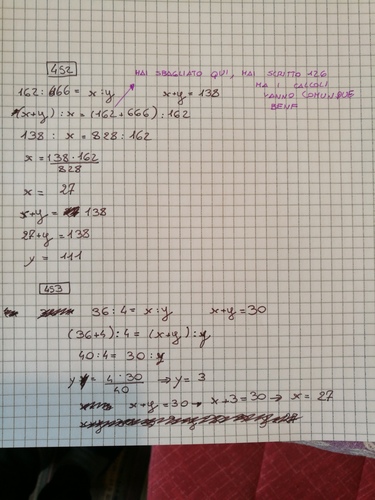 452
HAI SBAGLIATO QUI, HAI SCRITTO 126
MA I CALCOLI
VANNO COMUNQUE
BENE
162 : 666 = x : y x+y = 138
(x+y) : x = (162+666) : 162
138 : x = 828 : 162
x = 138 · 162
828
x = 27
x+y = 138
27+y = 138
y = 111
453
36 : 4 = x : y x+y = 30
(36+4) : 4 = (x+y) : y
40 : 4 = 30 : y
y = 4 · 30 ⇒ y = 3
40
x+y = 30 → x+3 = 30 → x = 27